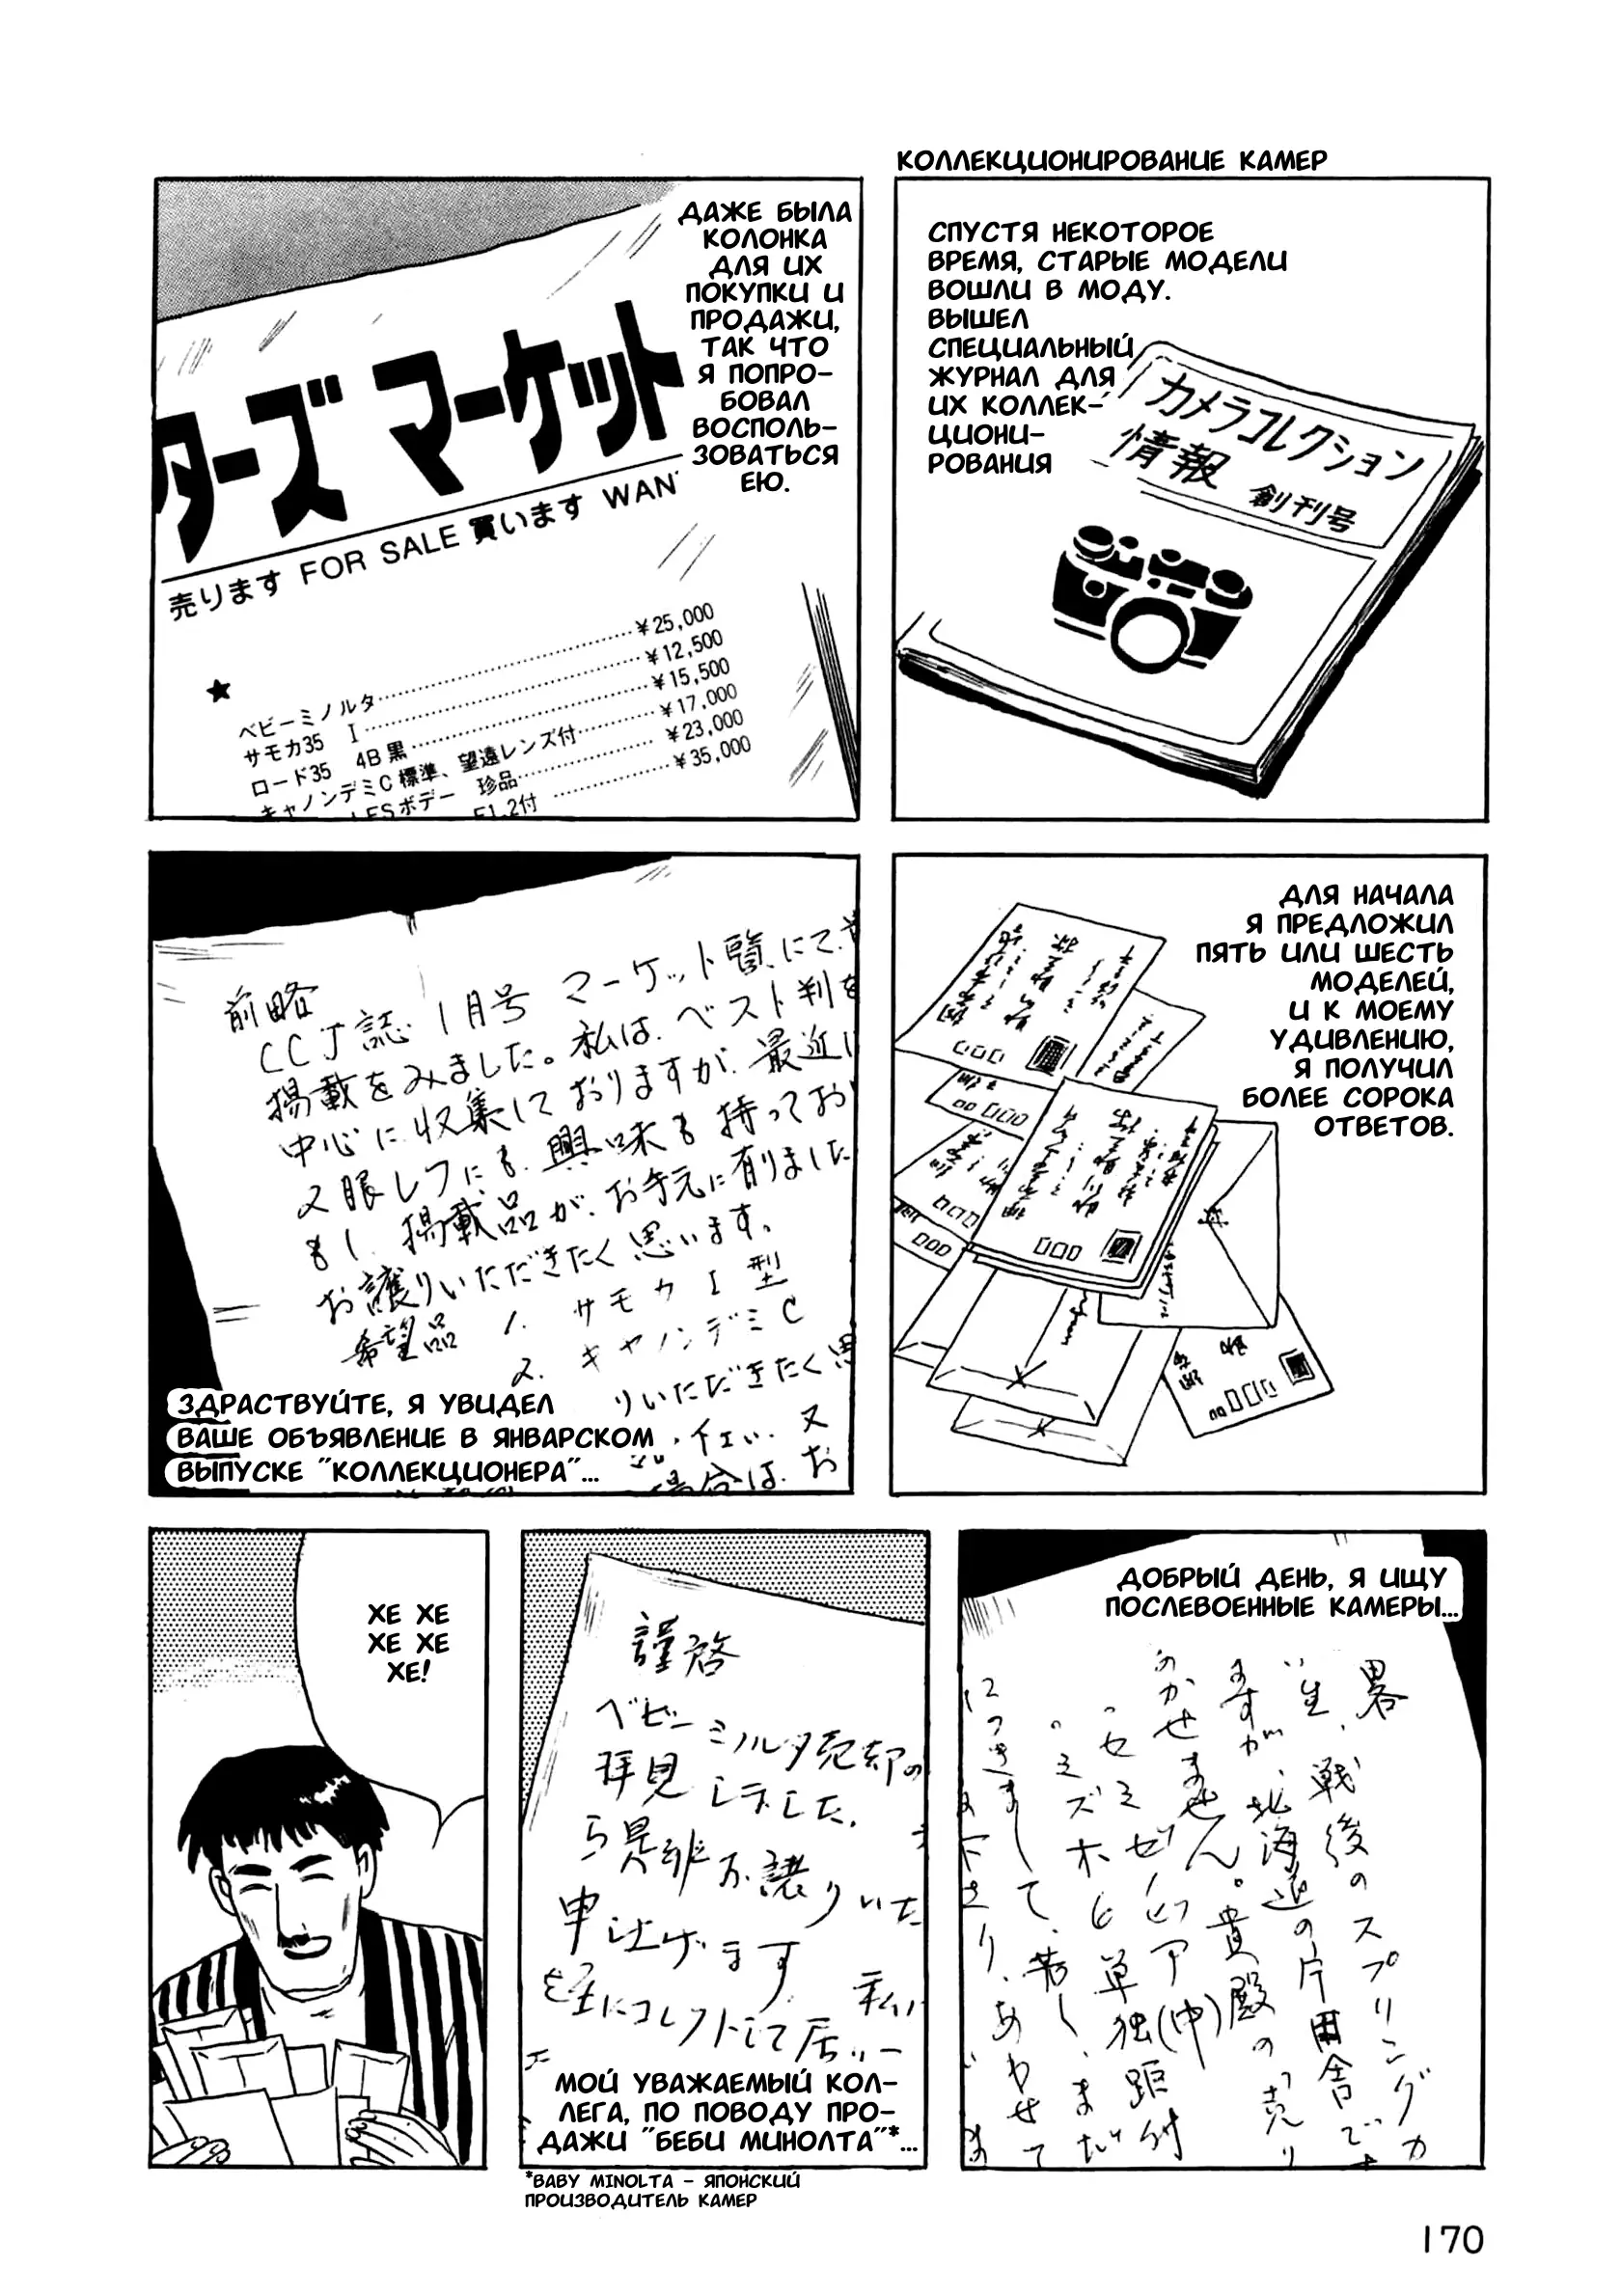 КОЛЛЕКЦИОНИРОВАНИЕ КАМЕР
СПУСТЯ НЕКОТОРОЕ
ВРЕМЯ, СТАРЫЕ МОДЕЛИ
ВОШЛИ В МОДУ.
ВЫШЕЛ
СПЕЦИАЛЬНЫЙ
ЖУРНАЛ ДЛЯ
ИХ КОЛЛЕК-
ЦИОНИ-
РОВАНИЯ
カメラコレクション
情報 創刊号
ДАЖЕ БЫЛА
КОЛОНКА
ДЛЯ ИХ
ПОКУПКИ И
ПРОДАЖИ,
ТАК ЧТО
Я ПОПРО-
БОВАЛ
ВОСПОЛЬ-
ЗОВАТЬСЯ
ЕЮ.
ターズ マーケット
売ります FOR SALE 買います WAN
★
ベビーミノルタ ¥25,000
サモカ35 I ¥12,500
ロード35 4B黒 ¥15,500
キャノンデミC標準、望遠レンズ付 ¥17,000
ボデー 珍品 ¥23,000
F1.2付 ¥35,000
ДЛЯ НАЧАЛА
Я ПРЕДЛОЖИЛ
ПЯТЬ ИЛИ ШЕСТЬ
МОДЕЛЕЙ,
И К МОЕМУ
УДИВЛЕНИЮ,
Я ПОЛУЧИЛ
БОЛЕЕ СОРОКА
ОТВЕТОВ.
前略
CCJ誌 1月号 マーケット覧にて
掲載をみました。私は、ベスト判を
中心に収集しておりますが、最近
2眼レフにも興味も持ってお
もし、掲載品が、お手元に有りました
お譲りいただきたく思います。
希望品 1. サモカ I 型
2. キャノンデミC
りいただきたく思
場合は、お
ЗДРАСТВУЙТЕ, Я УВИДЕЛ
ВАШЕ ОБЪЯВЛЕНИЕ В ЯНВАРСКОМ
ВЫПУСКЕ "КОЛЛЕКЦИОНЕРА"...
ДОБРЫЙ ДЕНЬ, Я ИЩУ
ПОСЛЕВОЕННЫЕ КАМЕРЫ...
畧
戦後のスプリングカ
ますが、北海道の片田舎で
のかせません。貴殿の「売り
セミゼノビア(中)
ミズホと単独距
つきまして、
あわせて
謹啓
ベビーミノルタ売却の
拝見しました。
お譲りいた
申し上げます
にコレクトして居
МОЙ УВАЖАЕМЫЙ КОЛ-
ЛЕГА, ПО ПОВОДУ ПРО-
ДАЖИ "БЕБИ МИНОЛТА"*...
*BABY MINOLTA – ЯПОНСКИЙ
ПРОИЗВОДИТЕЛЬ КАМЕР
ХЕ ХЕ
ХЕ ХЕ
ХЕ!
170